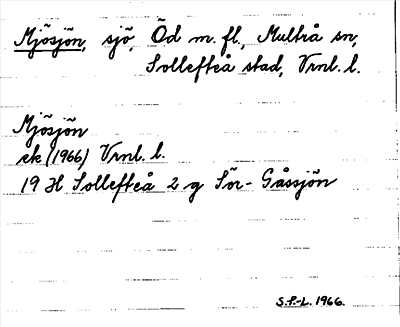 Mjösjön, sjö, Öd m. fl., Multrå sn,
Sollefteå stad, Vrnl. l.
Mjösjön
ek (1966) Vrnl. l.
19 H Sollefteå 2 g Sör-Gåssjön
S.P.-L. 1966.